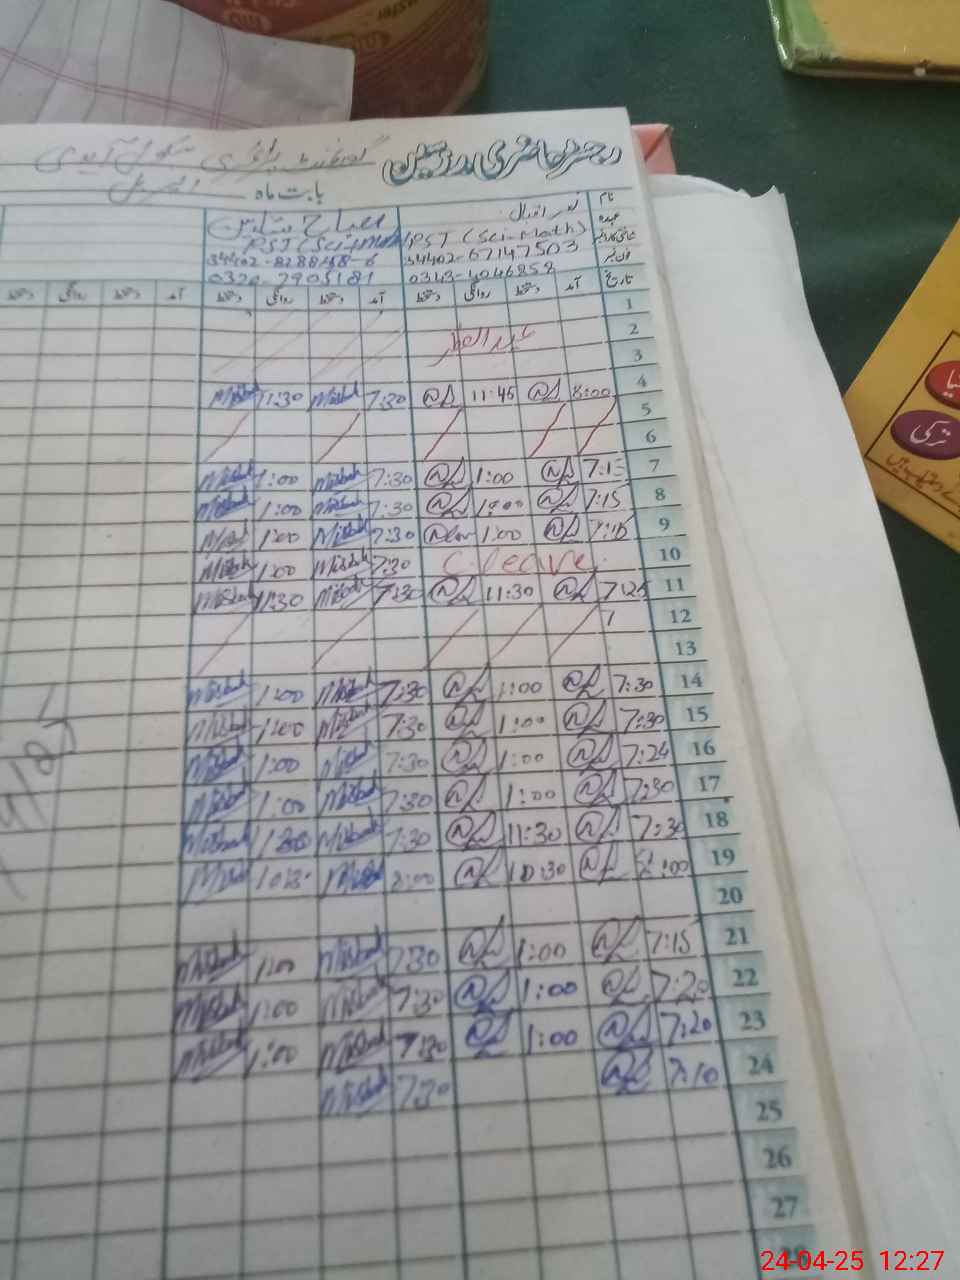 رجسٹر حاضری مدرسین گورنمنٹ پرائمری سکول
بابت ماہ اپریل
نام
عہدہ PST (Sci-Math) PST (Sci-Math)
شناختی کارڈ نمبر 34402-67147503 34402-8288148-6
فون نمبر 0343-4046858 0320-7905181
تاریخ آمد دستخط روانگی دستخط آمد دستخط روانگی دستخط آمد دستخط روانگی دستخط
1
2 عید الفطر
3
4 8:00 11:45 7:30 Misbah 11:30 Misbah
5
6
7 7:15 1:00 7:30 Misbah 1:00 Misbah
8 7:15 1:00 7:30 Misbah 1:00 Misbah
9 7:15 1:00 7:30 Misbah 1:00 Misbah
10 C. leave. 7:30 Misbah 1:00 Misbah
11 7:25 11:30 7:30 Misbah 11:30 Misbah
12
13
14 7:30 1:00 7:30 Misbah 1:00 Misbah
15 7:30 1:00 7:30 Misbah 1:00 Misbah
16 7:24 1:00 7:30 Misbah 1:00 Misbah
17 7:30 1:00 7:30 Misbah 1:00 Misbah
18 7:30 11:30 7:30 Misbah Misbah
19 8:00 10:30 8:00 Misbah 10:30 Misbah
20
21 7:15 1:00 7:30 Misbah 1:00 Misbah
22 7:20 1:00 7:30 Misbah 1:00 Misbah
23 7:20 1:00 7:30 Misbah 1:00 Misbah
24 7:10 7:30 Misbah
25
26
27
28
ترکی
24-04-25 12:27